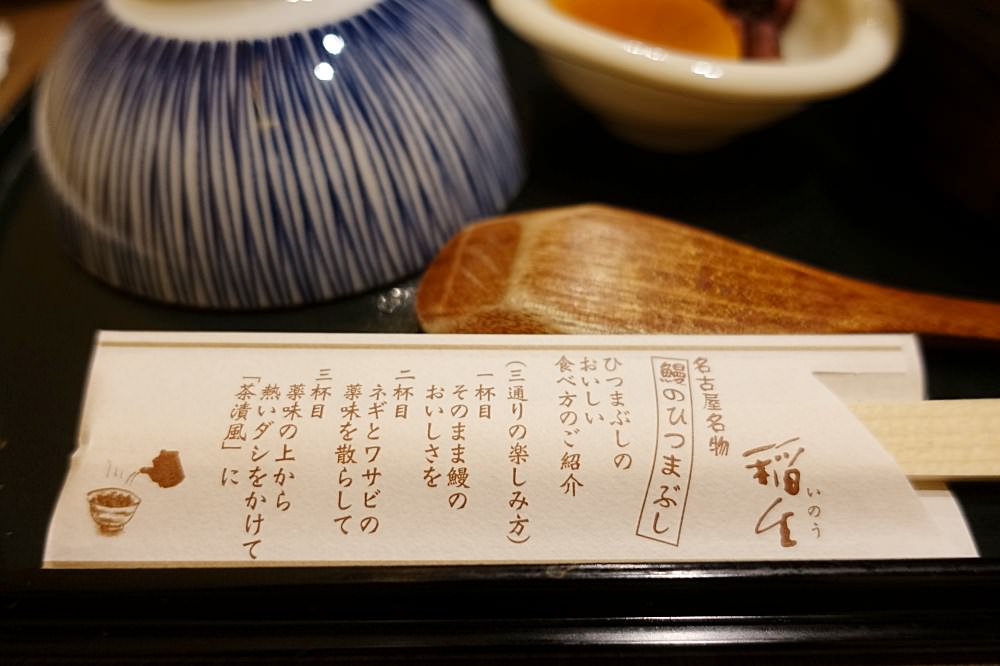 稲生
いのう
名古屋名物
鰻のひつまぶし
ひつまぶしの
おいしい
食べ方のご紹介
(三通りの楽しみ方)
一杯目
そのまま鰻の
おいしさを
二杯目
ネギとワサビの
薬味を散らして
三杯目
薬味の上から
熱いダシをかけて
「茶漬風」に